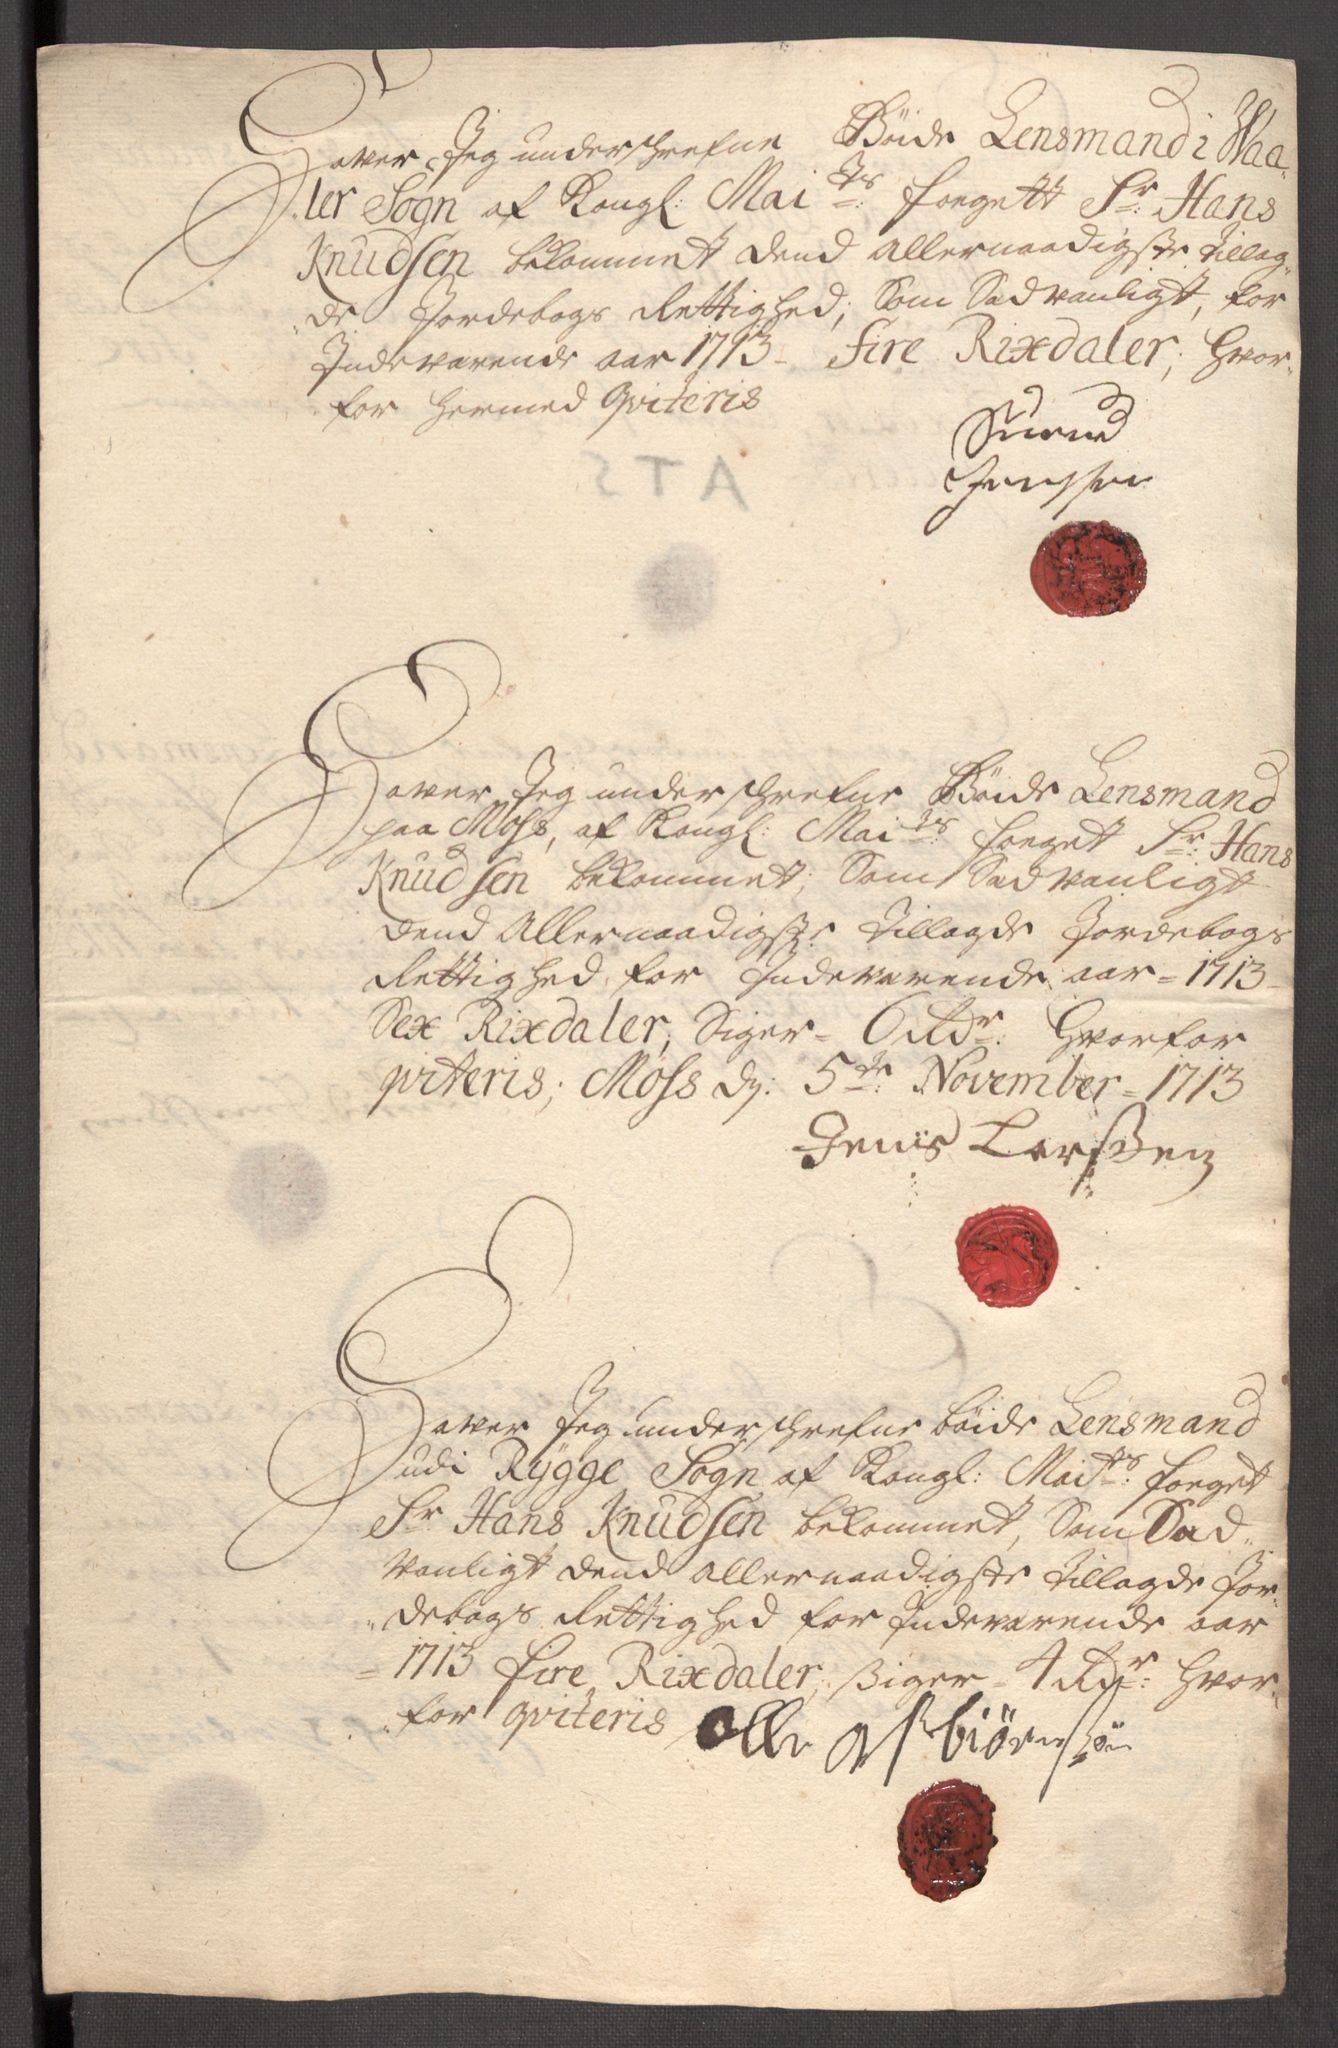 Haver Jeg underschrefne Böide Lensmand i Waa-
ler Sogn af Kongl: Mai:ts fogett Sr: Hans
Knudsen bekommet dend allernaadigste tillag-
de Jordebogs Rettighed, Som Sædvanligt, for
Indeværende aar 1713 fire Rixdaler, hvor-
for hermed qviteris
Suend
Jenssen
ATS
Haver Jeg underschrefne Böide Lensmand
paa Moss, af Kongl: Mai:ts foget Sr: Hans
Knudsen bekommet, Som Sædvanligt
dend Allernaadigste tillagde Jordebogs
Rettighed for Indeværende aar = 1713
Sex Rixdaler, Siger = 6 Rdr: hvorfor
qviteris; Moss d: 5te: November = 1713
Jens Larssen
Haver Jeg underschrefne böide Lensmand
udi Rygge Sogn af Kongl: Mai:ts foget
Sr Hans Knudsen bekommet, Som Sæd-
vanligt dend allernaadigste tillagde Jor-
debogs Rettighed for Indeværende aar
= 1713 fire Rixdaler, siger = 4 Rdr: hvor-
for qviteris Olle Asbiörnsön